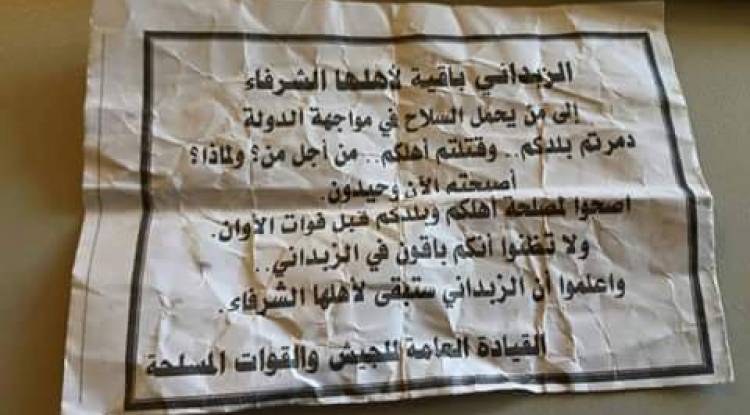 الزبداني باقية لأهلها الشرفاء
إلى من يحمل السلاح في مواجهة الدولة
دمرتم بلدكم.. وقتلتم أهلكم.. من أجل من؟ ولماذا؟
أصبحتم الآن وحيدون.
اصحوا لمصلحة أهلكم وبلدكم قبل فوات الأوان.
ولا تظنوا أنكم باقون في الزبداني..
واعلموا أن الزبداني ستبقى لأهلها الشرفاء.
القيادة العامة للجيش والقوات المسلحة